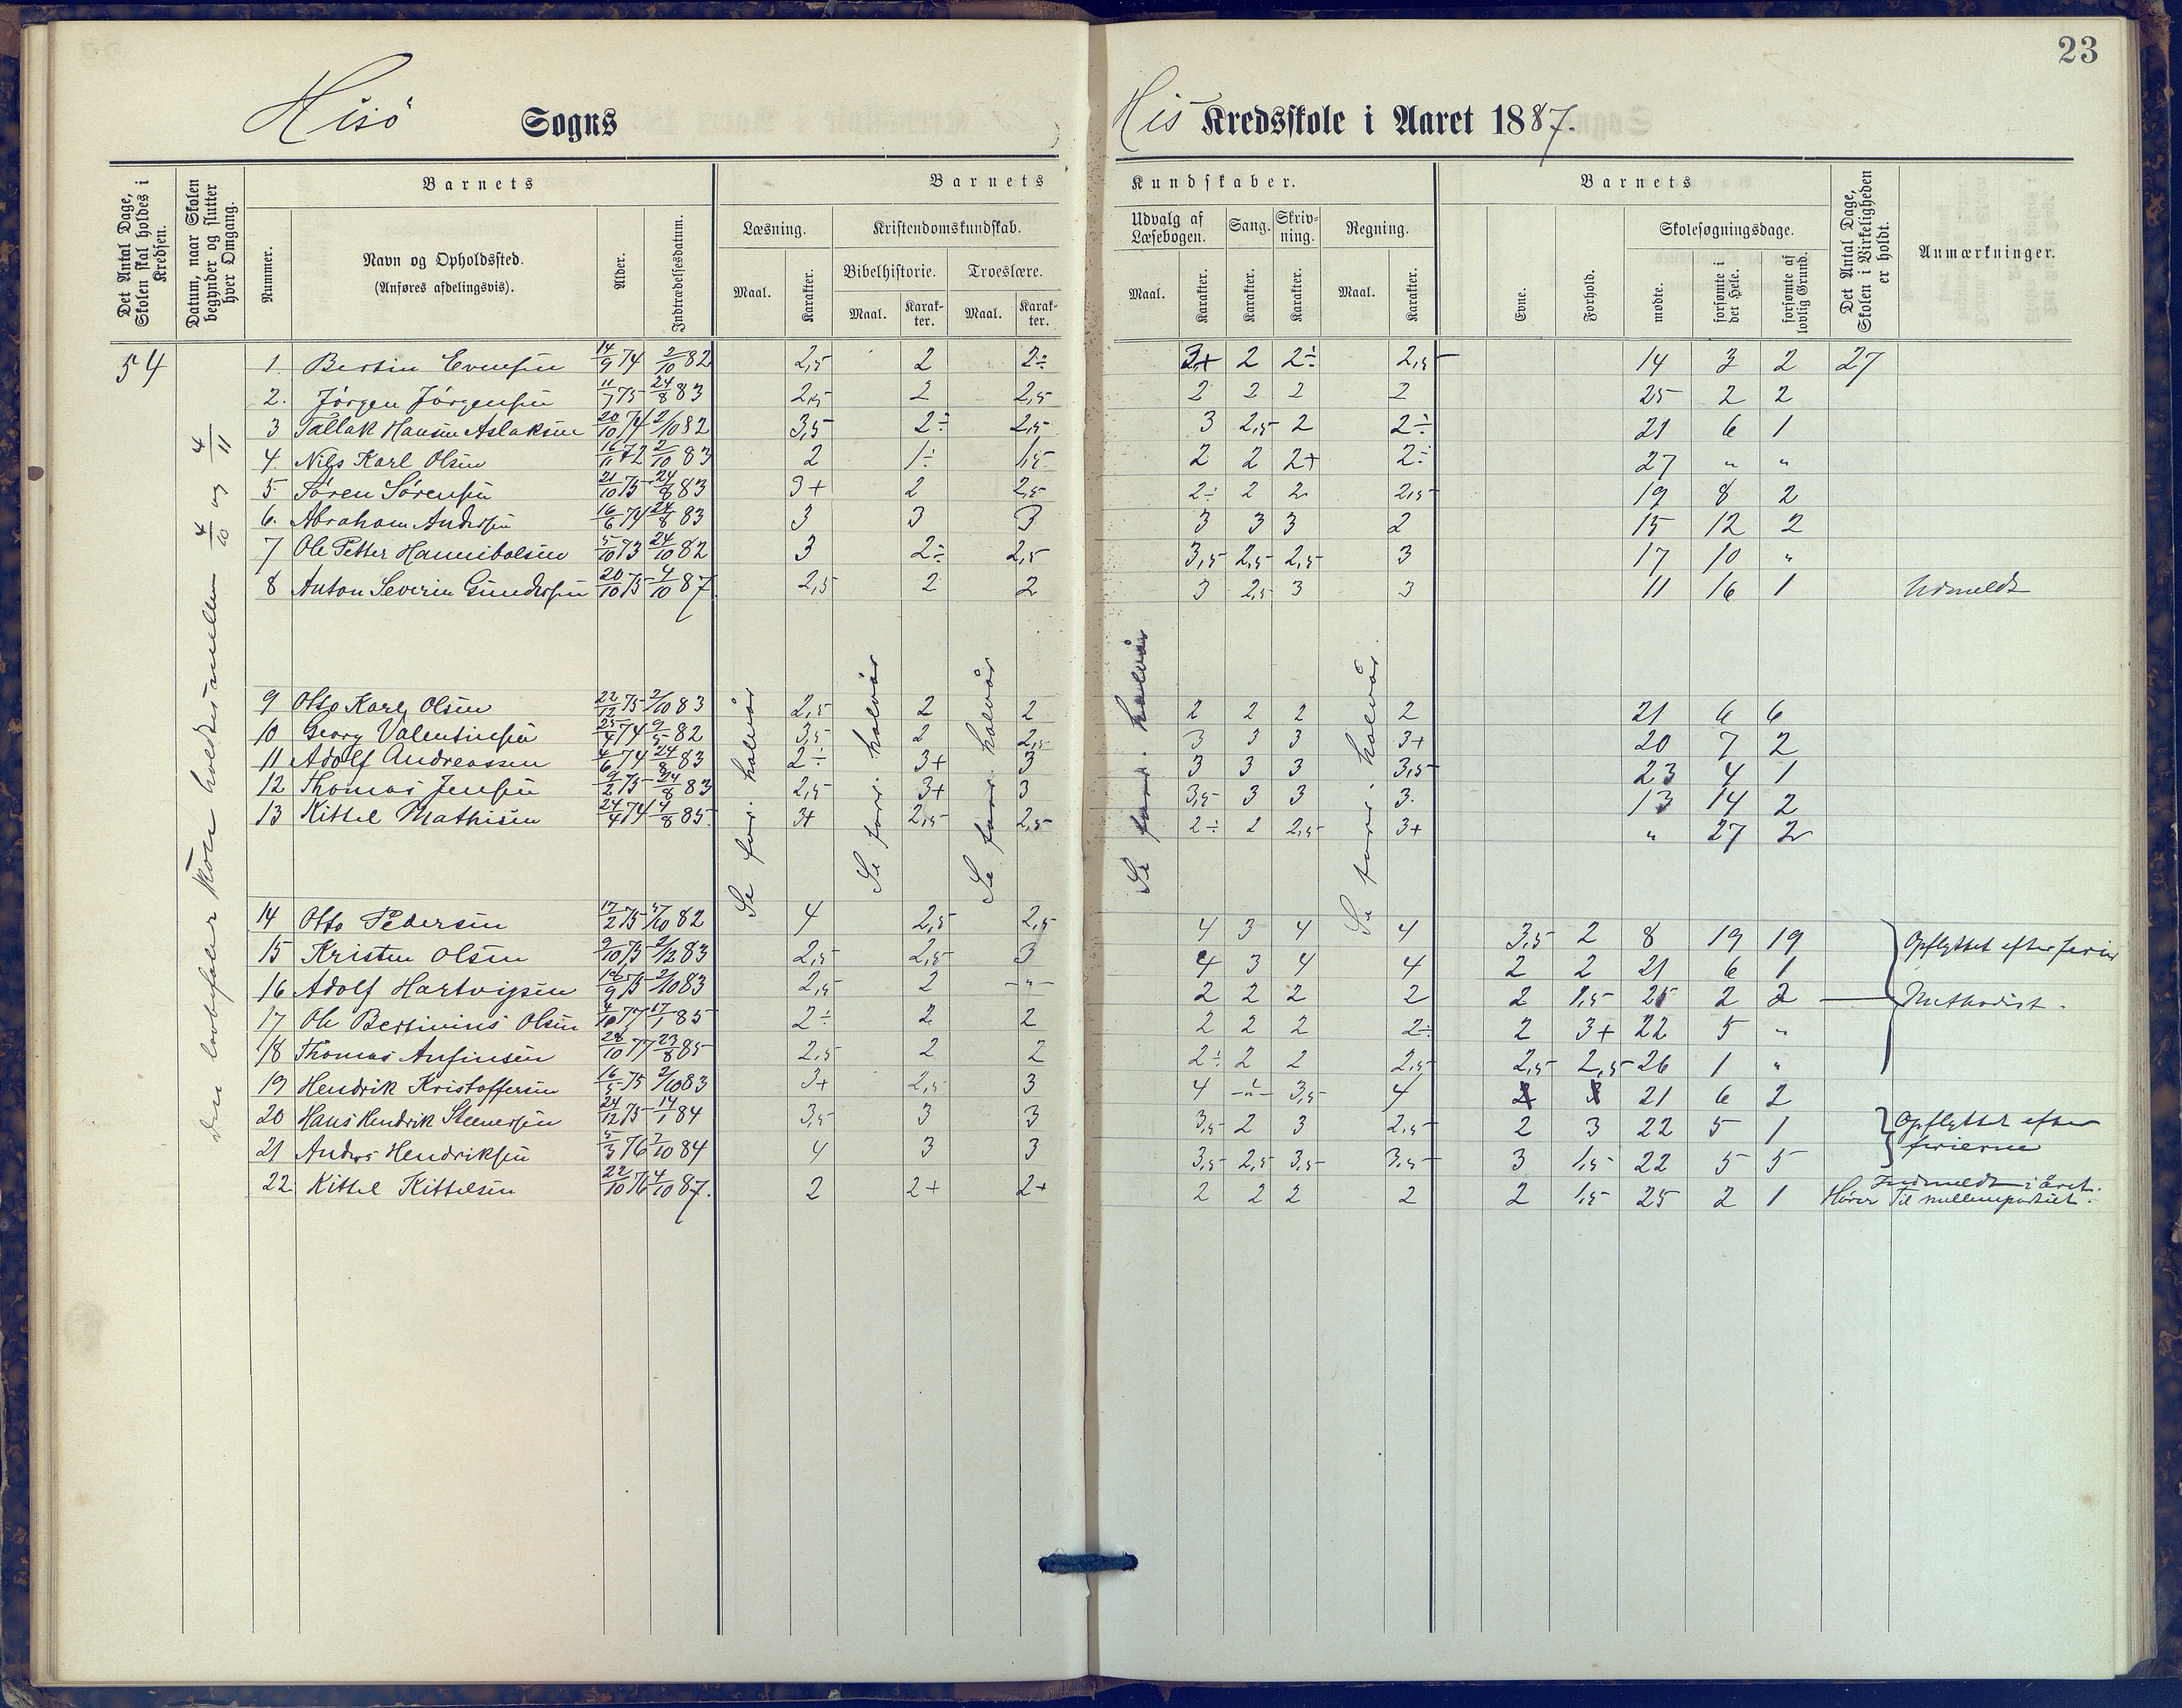 23
Hisö Sogns His Kredsskole i Aaret 1887.
Det Antal Dage, Skolen skal holdes i Kredsen.
Datum, naar Skolen begynder og slutter hver Omgang.
Barnets
Nummer.
Navn og Opholdssted. (Anføres afdelingsvis).
Alder.
Indtrædelsesdatum.
Barnets Kundskaber.
Læsning. Maal. Karakter.
Kristendomskundskab.
Bibelhistorie. Maal. Karakter.
Troeslære. Maal. Karakter.
Udvalg af Læsebogen. Maal. Karakter.
Sang. Karakter.
Skrivning. Karakter.
Regning. Maal. Karakter.
Barnets
Evne.
Forhold.
Skolesøgningsdage.
mødte.
forsømte i det Hele.
forsømte af lovlig Grund.
Det Antal Dage, Skolen i Virkeligheden er holdt.
Anmærkninger.
54
skole holdes imellem 4/10 og 4/11
1. Bertin Evensen 14/9 74 2/10 82 2,5 2 2÷ 3+ 2 2÷ 2,5 14 3 2 27
2. Jörgen Jörgensen 11/7 75 24/8 83 2,5 2 2,5 2 2 2 2 25 2 2
3 Tallak Hansen Aslaksen 20/10 74 2/10 82 3,5 2÷ 2,5 3 2,5 2 2÷ 21 6 1
4. Nils Karl Olsen 16/11 72 2/10 83 2 1÷ 1,5 2 2 2+ 2÷ 27 " "
5. Sören Sörensen 21/10 75 24/8 83 3+ 2 2,5 2÷ 2 2 2,5 19 8 2
6. Abraham Andersen 16/6 74 24/8 83 3 3 3 3 3 3 2 15 12 2
7 Ole Petter Hannibalsen 5/10 73 24/10 82 3 2÷ 2,5 3,5 2,5 2,5 3 17 10 "
8 Anton Severin Gundersen 20/10 75 4/10 87 2,5 2 2 3 2,5 3 3 11 16 1 Udmeldt
Se forr. halvår
Se forr. halvår
Se forr. halvår
Se forr. halvår
Se forr. halvår
9 Otto Karl Olsen 22/12 75 2/10 83 2,5 2 2 2 2 2 2 21 6 6
10 Georg Valentinsen 25/4 74 9/5 82 3,5 2 2,5 3 3 3 3+ 20 7 2
11 Adolf Andreassen 4/6 74 24/8 83 2÷ 3+ 3 3 3 3 3,5 23 4 1
12 Thomas Jensen 9/2 75 24/8 83 2,5 3+ 3 3,5 3 3 3. 13 14 2
13 Kittel Mathisen 24/4 74 4/8 85. 3+ 2,5 2,5 2÷ 2 2,5 3+ " 27 2
14 Otto Pedersen 17/2 75 5/10 82 4 2,5 2,5 4 3 4 4 3,5 2 8 19 19 Opflyttet efter ferien
15 Kristen Olsen 9/10 75 2/12 83 2,5 2,5 3 4 3 4 4 2 2 21 6 1
16 Adolf Hartvigsen 9 75 2/10 83 2,5 2 -"- 2 2 2 2 2 1,5 25 2 2 Methodist.
17 Ole Bertinius Olsen 4/10 77 17/1 85 2÷ 2 2 2 2 2 2÷ 2 3+ 22 5 "
18 Thomas Anfinsen 28/10 77 23/8 85 2,5 2 2 2÷ 2 2 2,5 2,5 2,5 26 1 "
19 Hendrik Kristoffersen 16/5 75 2/10 83 3+ 2,5 3 4 -"- 3,5 4 21 6 2
20 Hans Hendrik Steenersen 24/12 75 14/1 84 3,5 3 3 3,5 2 3 2,5 2 3 22 5 1 Opflyttet efter
21 Anders Hendriksen 5/3 76 2/10 84 4 3 3 3,5 2,5 3,5 3,5 3 1,5 22 5 5 ferierne
22 Kittel Kittelsen 22/10 76 4/10 87. 2 2+ 2+ 2 2 2 2 2 1,5 25 2 1 Indmeldt i året.
Hörer til mellempartiet.